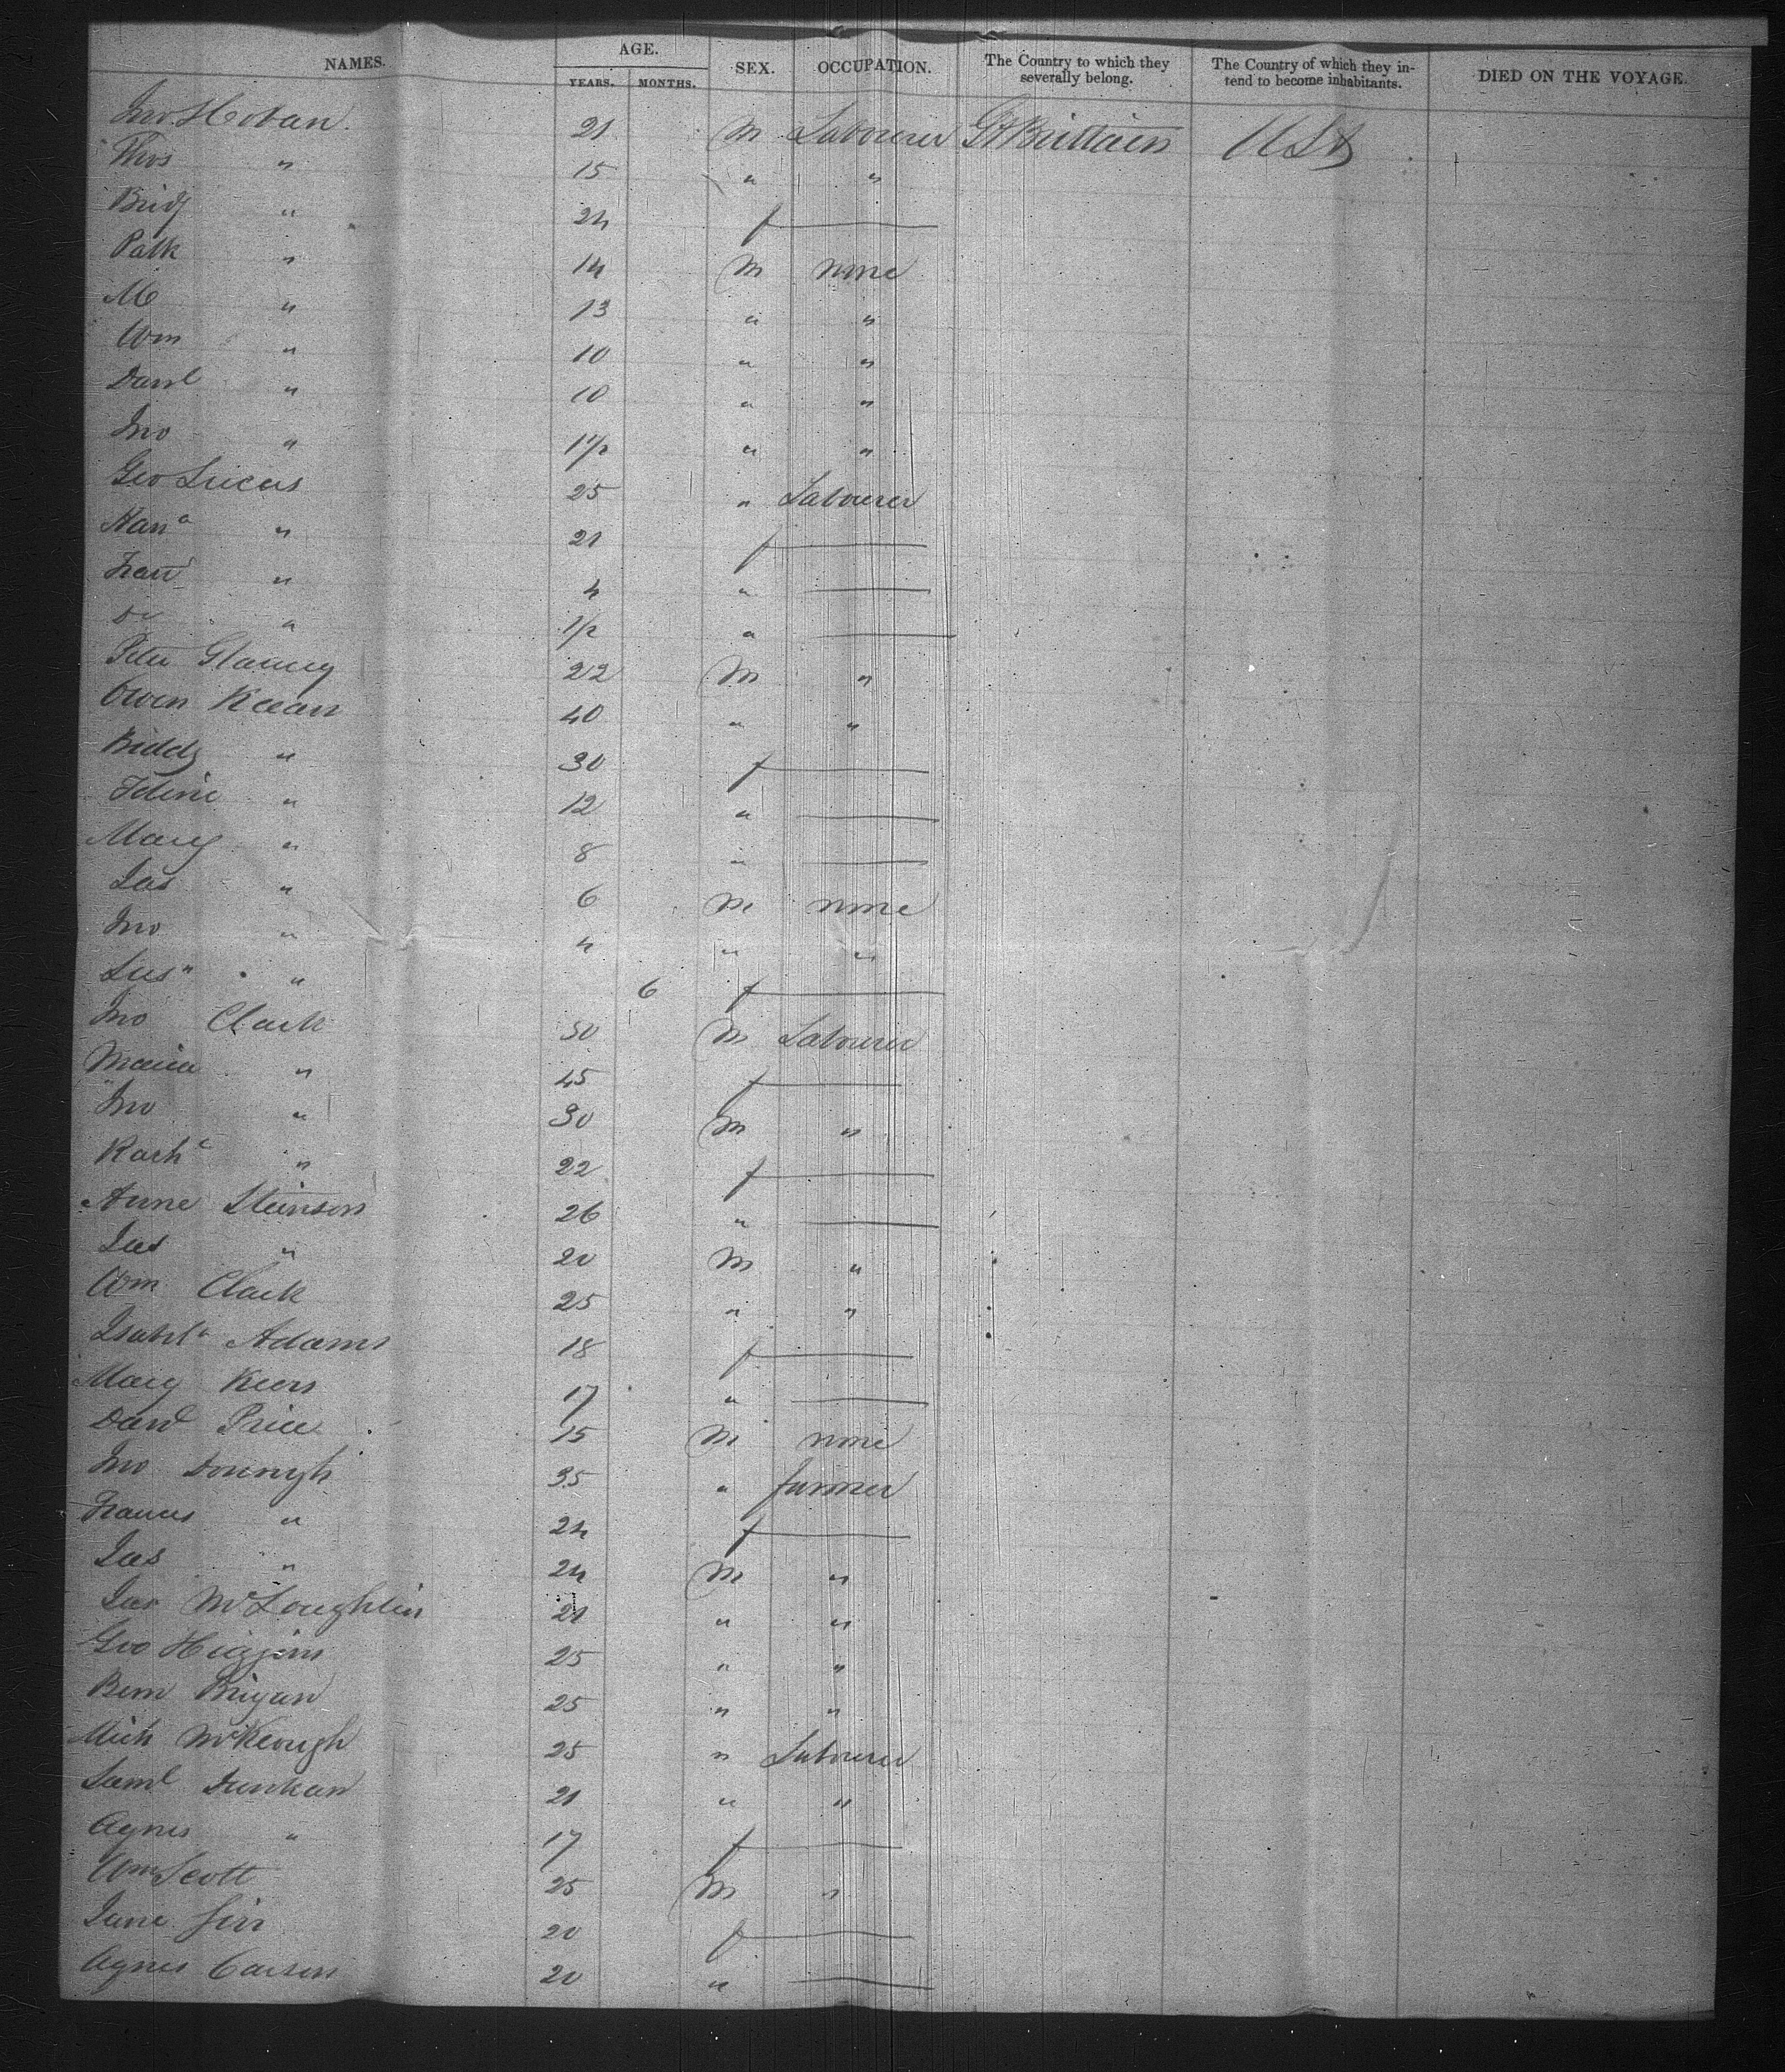 NAMES. AGE. SEX. OCCUPATION. The Country to which they severally belong. The Country of which they intend to become inhabitants. DIED ON THE VOYAGE.
YEARS. MONTHS.
Jno Hoban 21 M Labourer Gt Brittain USA
Thos " 15 " "
Bridg " 24 f
Patk " 14 M none
M " 13 " "
Wm " 10 " "
Danl " 10 " "
Jno " 1 1/2 " "
Geo Lucas 25 " Labourer
" 21 f
" 4 "
" 1/2 "
Peter Glancey 22 M "
Owen Kean 40 " "
Biddy " 30 f
" 12 "
Mary " 8 "
Jas " 6 M none
Jno " 4 " "
" 6 f
Jno Clark 50 M Labourer
Maria " 45 f
Jno " 30 M "
" 22 f
Anne Stinson 26 "
Jas " 20 M "
Wm Clark 25 " "
Isabla Adams 18 f
Mary Keers 17 "
Davd Price 15 M none
Jno 35 " farmer
Frances " 24 f
Jas " 24 M "
Jas McLoughlin 21 " "
Geo Higgins 25 " "
25 " "
Mich McKeough 25 " Labourer
Saml Dunkan 21 " "
Agnes " 17 f
Wm Scott 25 M "
Jane 20 f
Agnes Carson 20 "